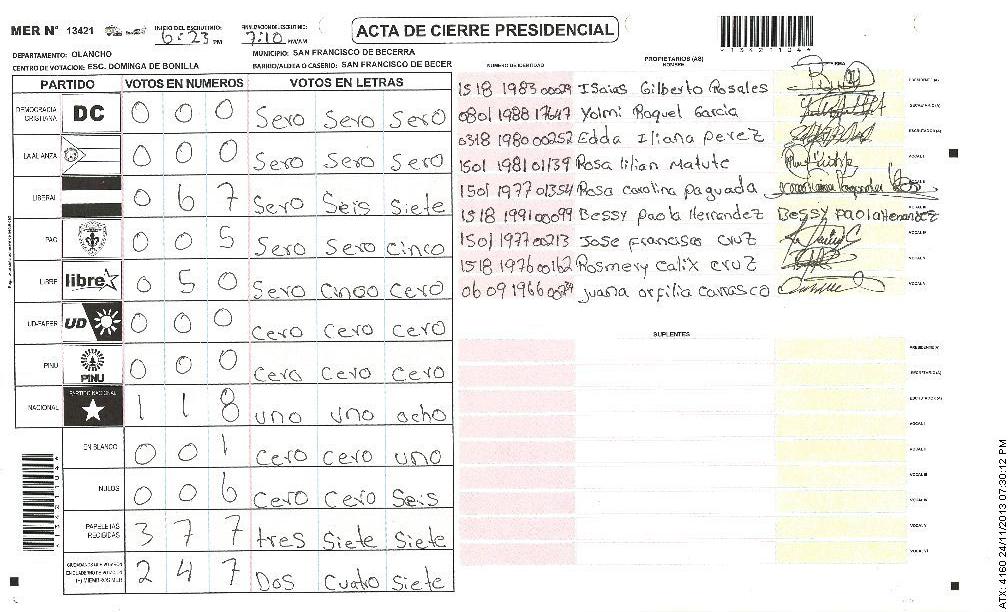 MER N° 13421 INICIO DEL ESCRUTINIO: 6:23 PM FINALIZACION DEL ESCRUTINIO: 7:10 AM/AM ACTA DE CIERRE PRESIDENCIAL
DEPARTAMENTO: OLANCHO MUNICIPIO: SAN FRANCISCO DE BECERRA
CENTRO DE VOTACION: ESC. DOMINGA DE BONILLA BARRIO/ALDEA O CASERIO: SAN FRANCISCO DE BECER
PARTIDO VOTOS EN NUMEROS VOTOS EN LETRAS
DEMOCRACIA CRISTIANA DC 0 0 0 Sero Sero Sero
LA ALIANZA 0 0 0 Sero Sero Sero
LIBERAL 0 6 7 Sero Seis Siete
PAC 0 0 5 Sero Sero Cinco
LIBRE libre 0 5 0 Sero Cinco Cero
UD-FAPER UD 0 0 0 Cero Cero Cero
PINU PINU 0 0 0 Cero Cero Cero
NACIONAL PARTIDO NACIONAL 1 1 8 uno uno ocho
EN BLANCO 0 0 1 Cero Cero uno
NULOS 0 0 6 Cero Cero Seis
PAPELETAS RECIBIDAS 3 7 7 tres Siete Siete
2 4 7 Dos Cuatro Siete
PROPIETARIOS (AS)
NUMERO DE IDENTIDAD NOMBRE FIRMA
1518 1983 00029 Isaias Gilberto Rosales PRESIDENTE(A)
0801 1988 17647 Yolmi Raquel Garcia SECRETARIO (A)
0318 1980 00252 Edda Iliana perez ESCRUTADOR(A)
1501 1981 01139 Rosa lilian Matute VOCAL I
1501 1977 01354 Rosa carolina paguada VOCAL II
1518 1991 00099 Bessy paola Hernandez Bessy Paola Hernandez VOCAL III
1501 1977 00213 Jose francisco cruz VOCAL IV
1518 1976 00162 Rosmery calix cruz VOCAL V
0609 1966 juana orfilia carrasco
SUPLENTES
PRESIDENTE(A)
SECRETARIO(A)
ESCRUTADOR(A)
VOCAL I
VOCAL II
VOCAL III
VOCAL IV
VOCAL V
VOCAL VI
ATX: 4160 24/11/2013 07:30:12 PM